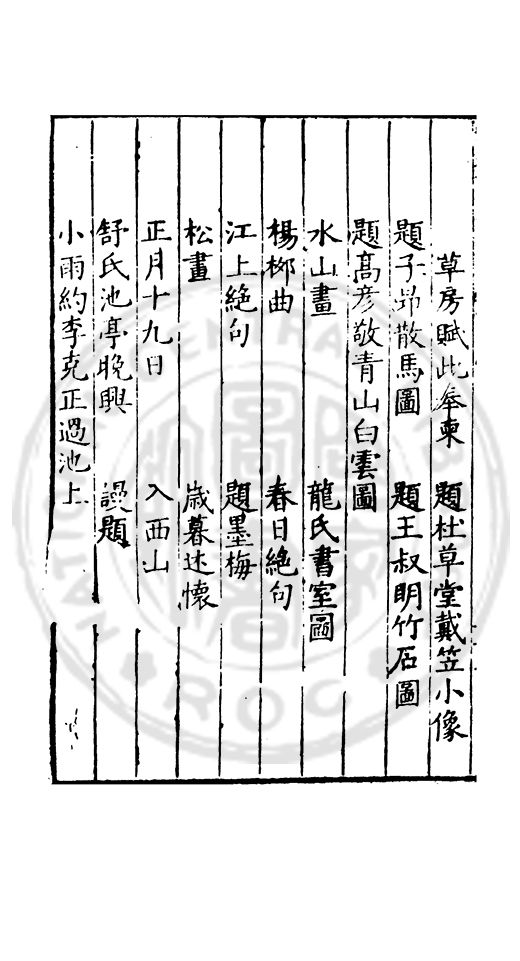 草房賦此奉柬　題杜草堂戴笠小像
題子昂散馬圖　題王叔明竹石圖
題髙彦敬青山白雲圖
水山畫　龍氏書室圖
楊栁曲　春日絶句
江上絶句　題墨梅
松畫　歳暮述懷
正月十九日　入西山
舒氏池亭晚興　謾題
小雨約李克正過池上